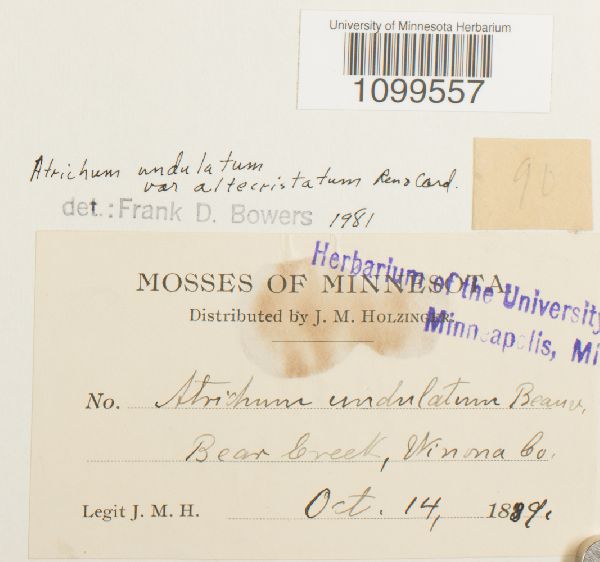 University of Minnesota Herbarium
1099557
Atrichum undulatum
var altecristatum Ren & Card.
90
det.: Frank D. Bowers 1981
Herbarium of the University
Minneapolis, Mi
MOSSES OF MINNESOTA
Distributed by J. M. HOLZINGER.
No. Atrichum undulatum Beauv.
Bear Creek, Winona Co.
Legit J. M. H. Oct. 14, 1889.